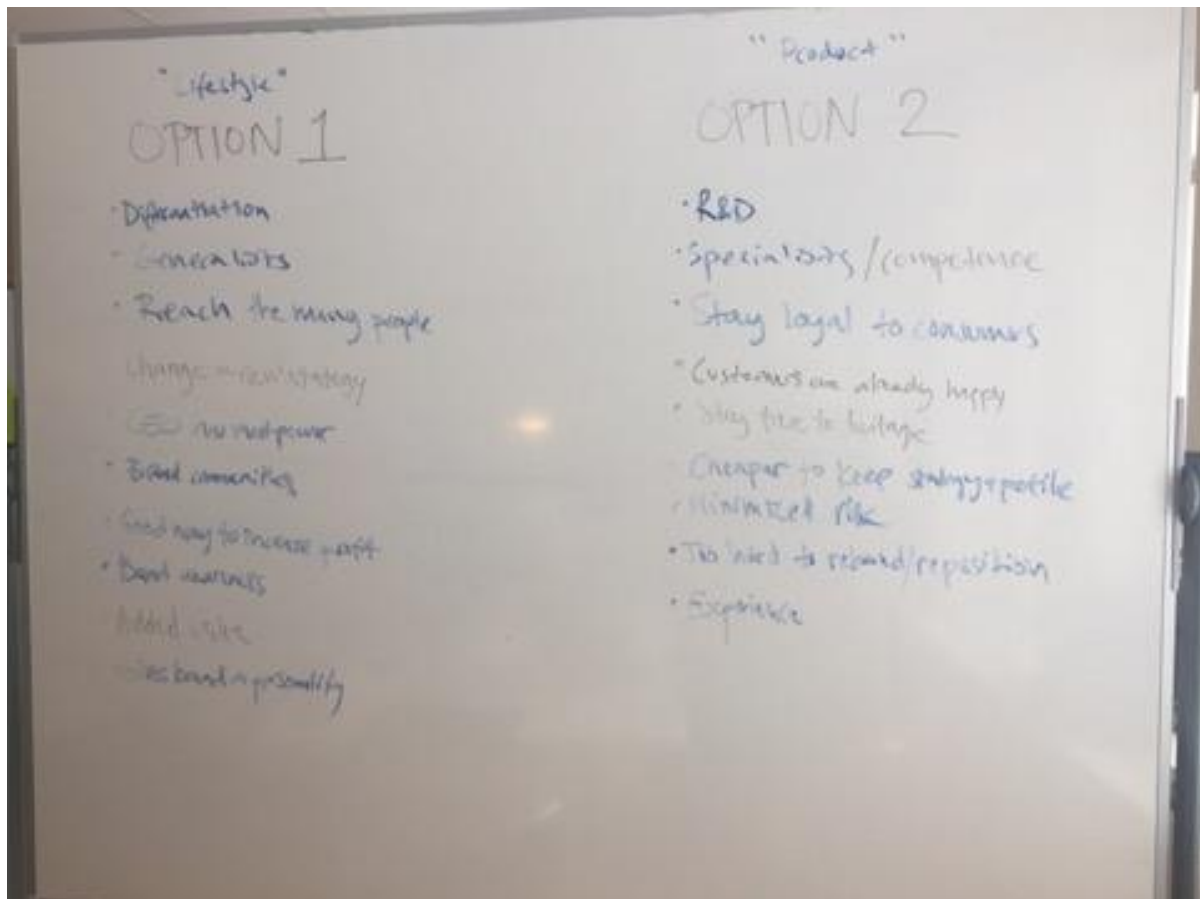 "Lifestyle"
OPTION 1
· Differentiation
· Generalists
· Reach the many people
Change new strategy
CEO
· Brand communities
· Good way to increase profit
· Brand awareness
Added value
brand personality
"Product"
OPTION 2
· R&D
· Specialists/competence
· Stay loyal to consumers
· Customers are already happy
· Stay true to heritage
Cheaper to keep strategy + profile
· Minimized risk
· Too hard to rebrand/reposition
· Experience